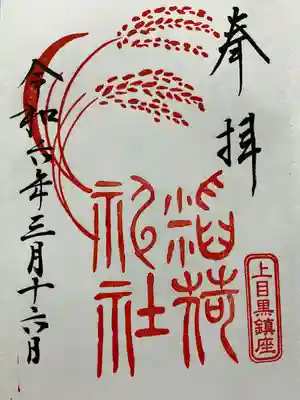 奉拝
稲荷
神社
上目黒鎮座
令和六年三月十六日